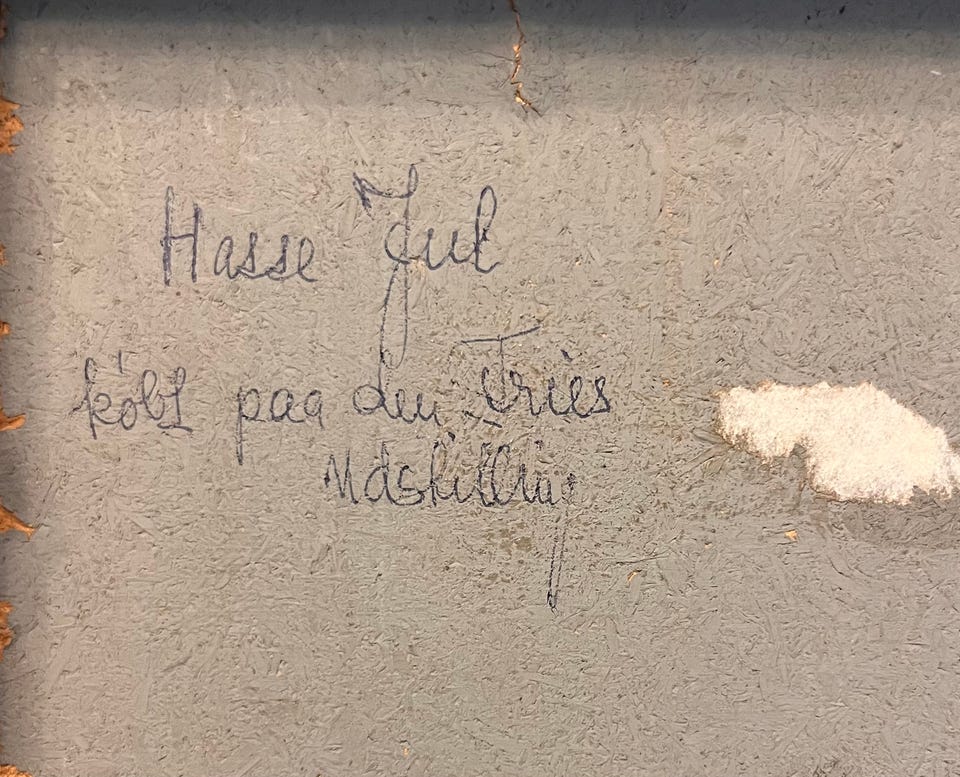 Hasse Jul
kóbt paa den Fries
Udstilling